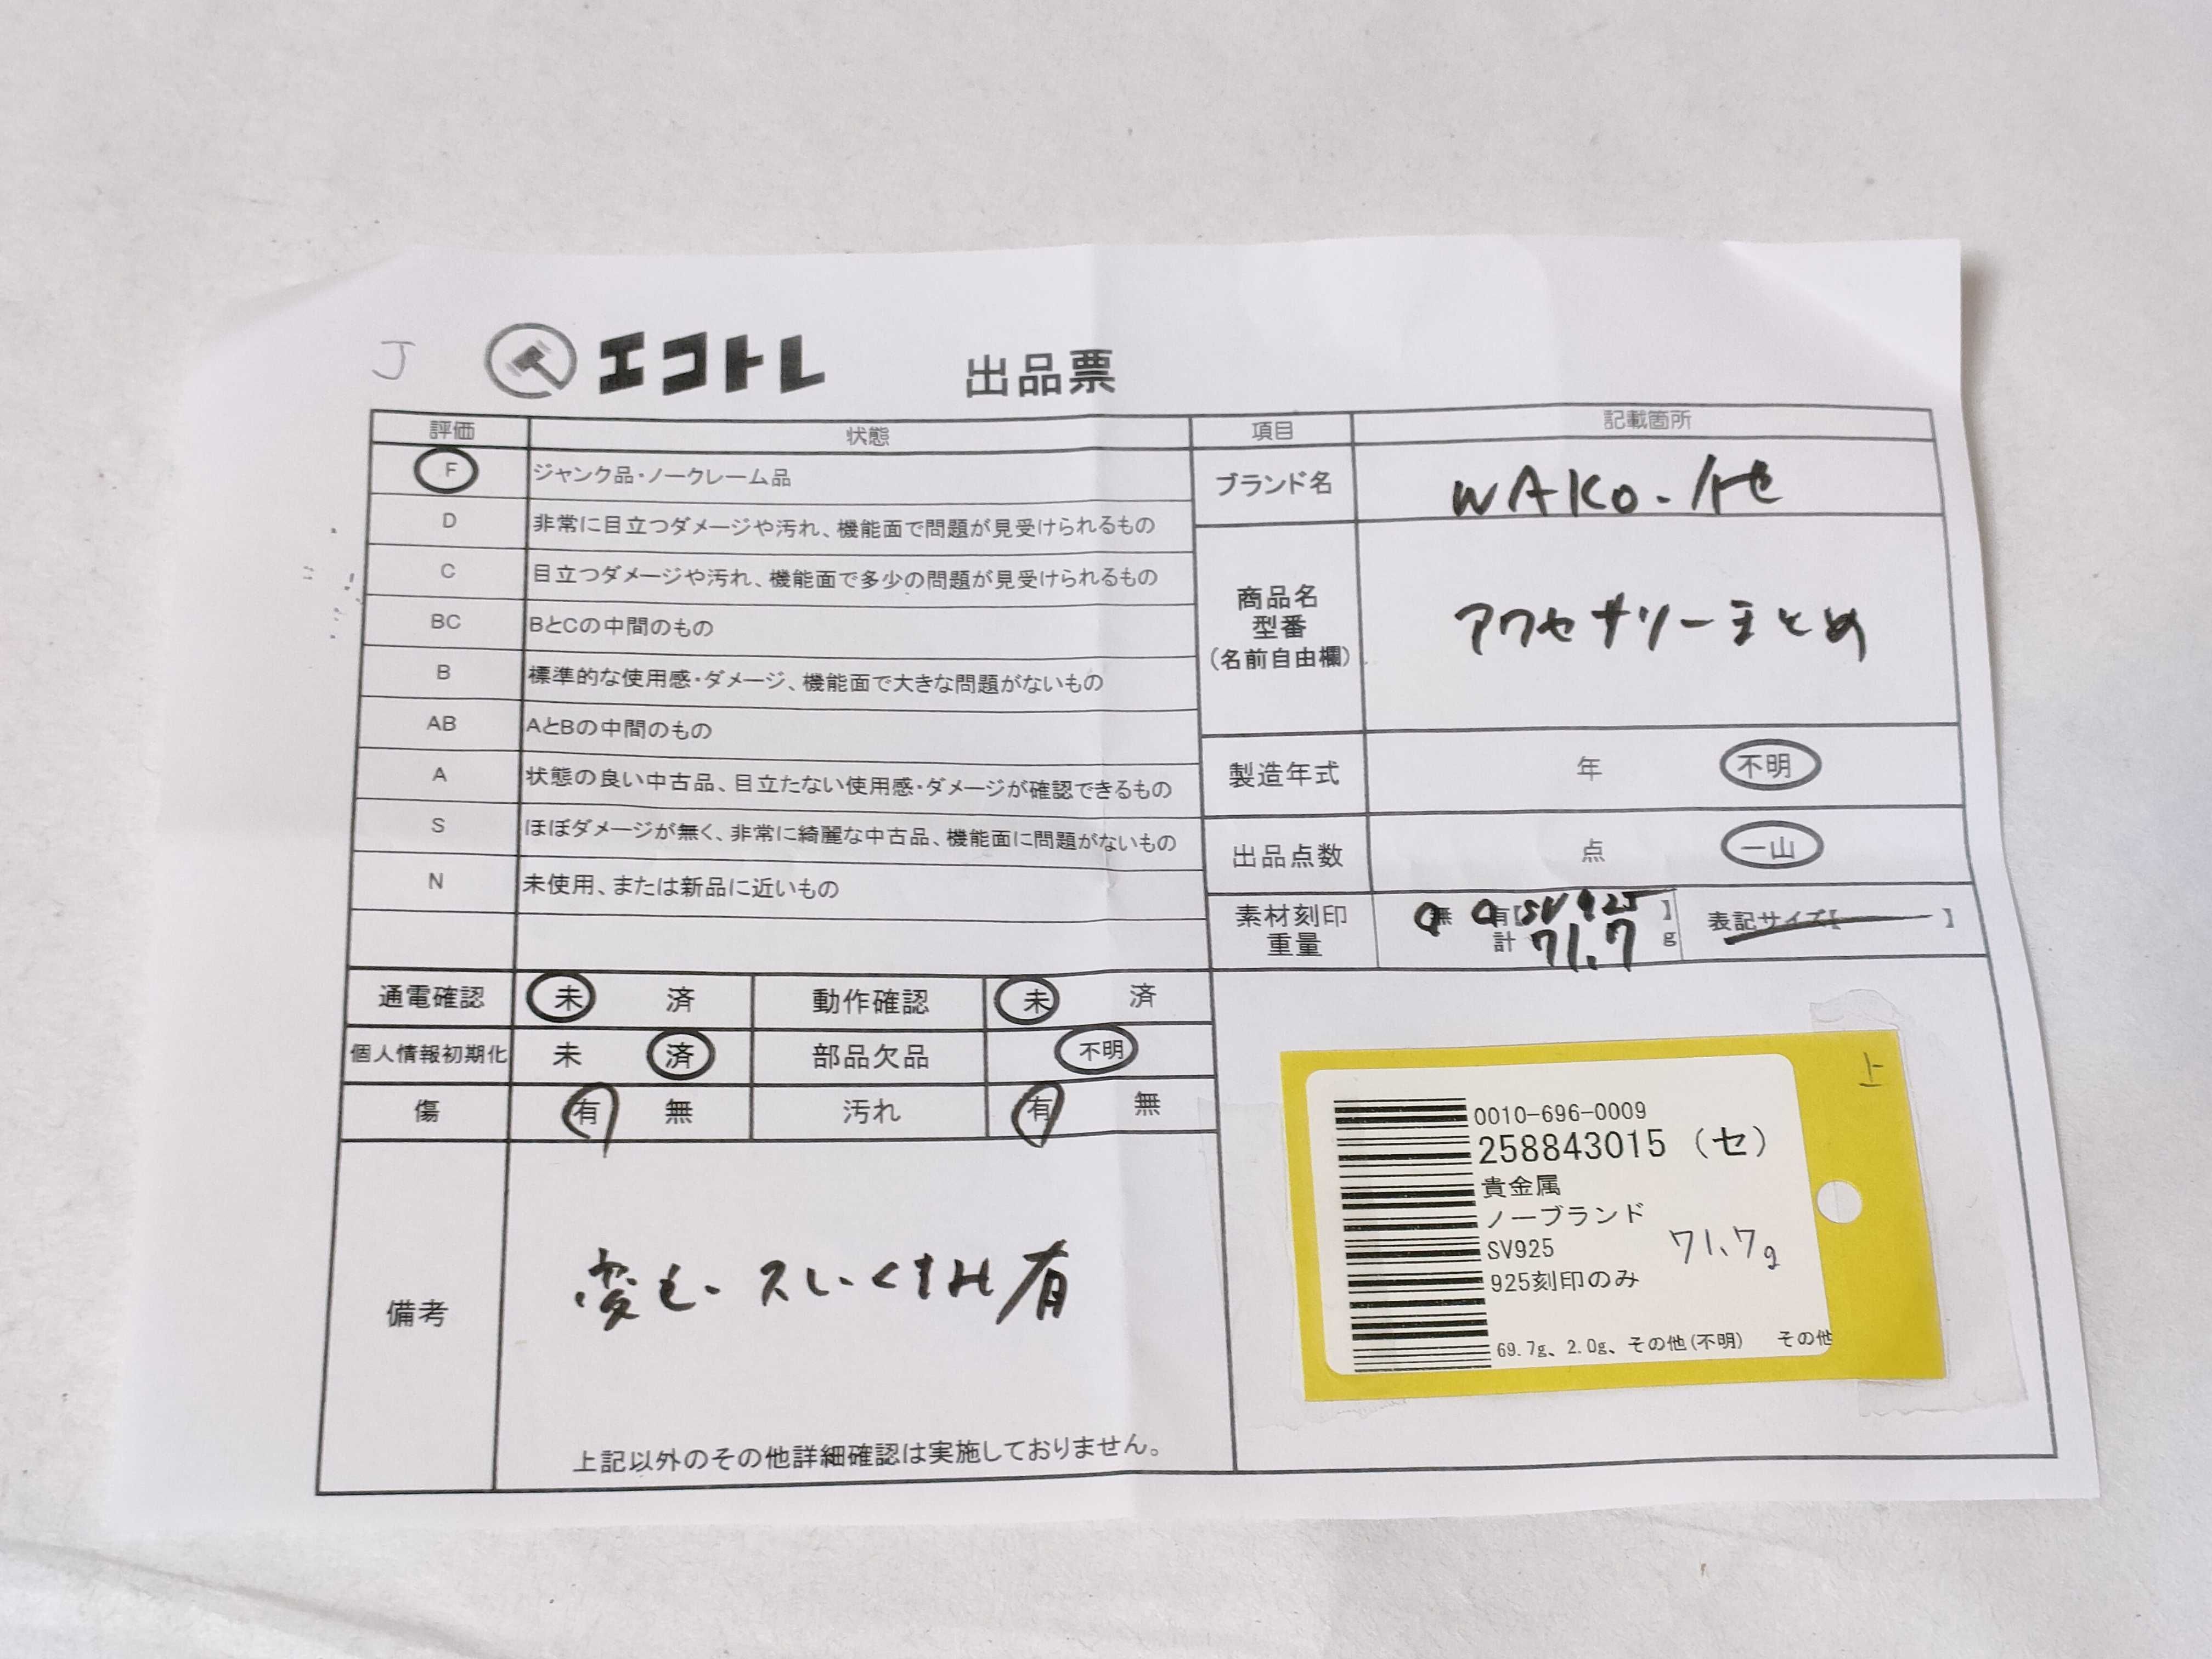 J
エコトレ 出品票
評価 状態
F ジャンク品・ノークレーム品
D 非常に目立つダメージや汚れ、機能面で問題が見受けられるもの
C 目立つダメージや汚れ、機能面で多少の問題が見受けられるもの
BC BとCの中間のもの
B 標準的な使用感・ダメージ、機能面で大きな問題がないもの
AB AとBの中間のもの
A 状態の良い中古品、目立たない使用感・ダメージが確認できるもの
S ほぼダメージが無く、非常に綺麗な中古品、機能面に問題がないもの
N 未使用、または新品に近いもの
項目 記載箇所
ブランド名 WAKO. 他
商品名
型番
(名前自由欄)
アクセサリーまとめ
製造年式 年 不明
出品点数 点 一山
素材刻印 無 有【SV925】
重量 計 71.7 g
表記サイズ【 】
通電確認 未 済 動作確認 未 済
個人情報初期化 未 済 部品欠品 不明
傷 有 無 汚れ 有 無
備考
変色・スレ・くすみ有
上記以外のその他詳細確認は実施しておりません。
上
0010-696-0009
258843015 (セ)
貴金属
ノーブランド
SV925 71.7g
925刻印のみ
69.7g、2.0g、その他(不明) その他